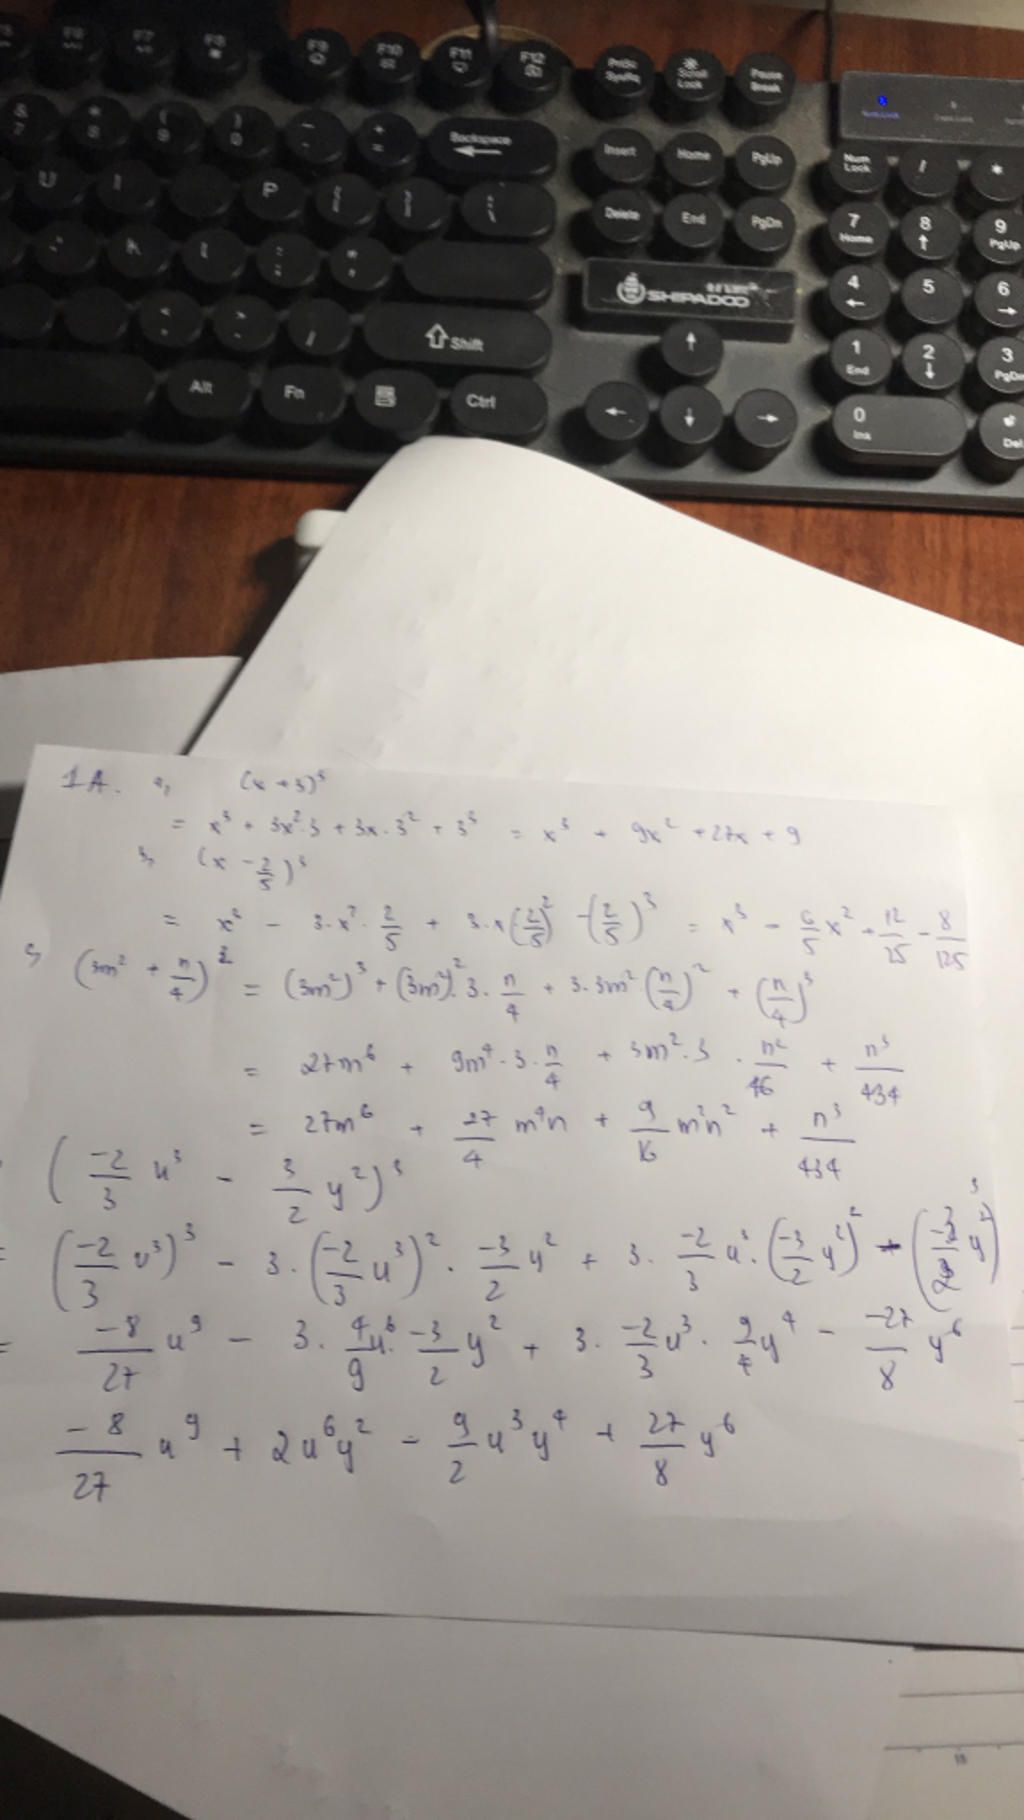 F6 F7 F8 F9 F10 F11 F12 PrtSc SysRq Scroll Lock Pause Break
& 7 * 8 ( 9 ) 0 - + = Backspace Insert Home PgUp Num Lock / *
U I P Delete End PgDn 7 Home 8 9 PgUp
K SHIPADOO 4 5 6
Shift 1 End 2 3 PgDn
Alt Fn Ctrl 0 Ins Del
1A. a, (x + 3)³
= x³ + 3x²·3 + 3x·3² + 3³ = x³ + 9x² + 27x + 9
b, (x - 2/5)³
= x² - 3·x²·2/5 + 3·x(2/5)² - (2/5)³ = x³ - 6/5 x² + 12/25 - 8/125
c, (3m² + n/4)³ = (3m²)³ + (3m²)²·3·n/4 + 3·3m²(n/4)² + (n/4)³
= 27m⁶ + 9m⁴·3·n/4 + 3m²·3·n²/16 + n³/434
= 27m⁶ + 27/4 m⁴n + 9/16 m²n² + n³/434
(-2/3 u³ - 3/2 y²)³
= (-2/3 u³)³ - 3·(-2/3 u³)²·-3/2 y² + 3·-2/3 u³·(-3/2 y²)² - (-3/2 y²)³
= -8/27 u⁹ - 3·4/9 u⁶·-3/2 y² + 3·-2/3 u³·9/4 y⁴ - -27/8 y⁶
-8/27 u⁹ + 2u⁶y² - 9/2 u³y⁴ + 27/8 y⁶